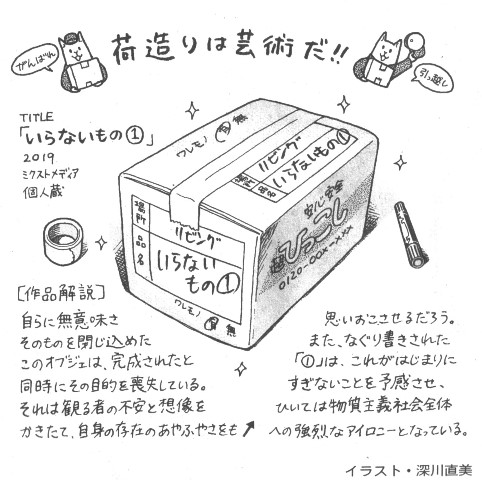 荷造りは芸術だ!!
がんばれ
引っ越し
TITLE
「いらないもの①」
2019
ミクストメディア
個人蔵
ワレモノ 有 無
リビング
いらないもの①
場所
品名
リビング
いらない
もの①
ワレモノ 有 無
安心安全
超ひっこし
0120-00x-xxx
[作品解説]
自らに無意味さ
そのものを閉じ込めた
このオブジェは、完成されたと
同時にその目的を喪失している。
それは観る者の不安と想像を
かきたて、自身の存在のあやふやさをも
思いおこさせるだろう。
また、なぐり書きされた
「①」は、これがはじまりに
すぎないことを予感させ、
ひいては物質主義社会全体
への強烈なアイロニーとなっている。
イラスト・深川直美